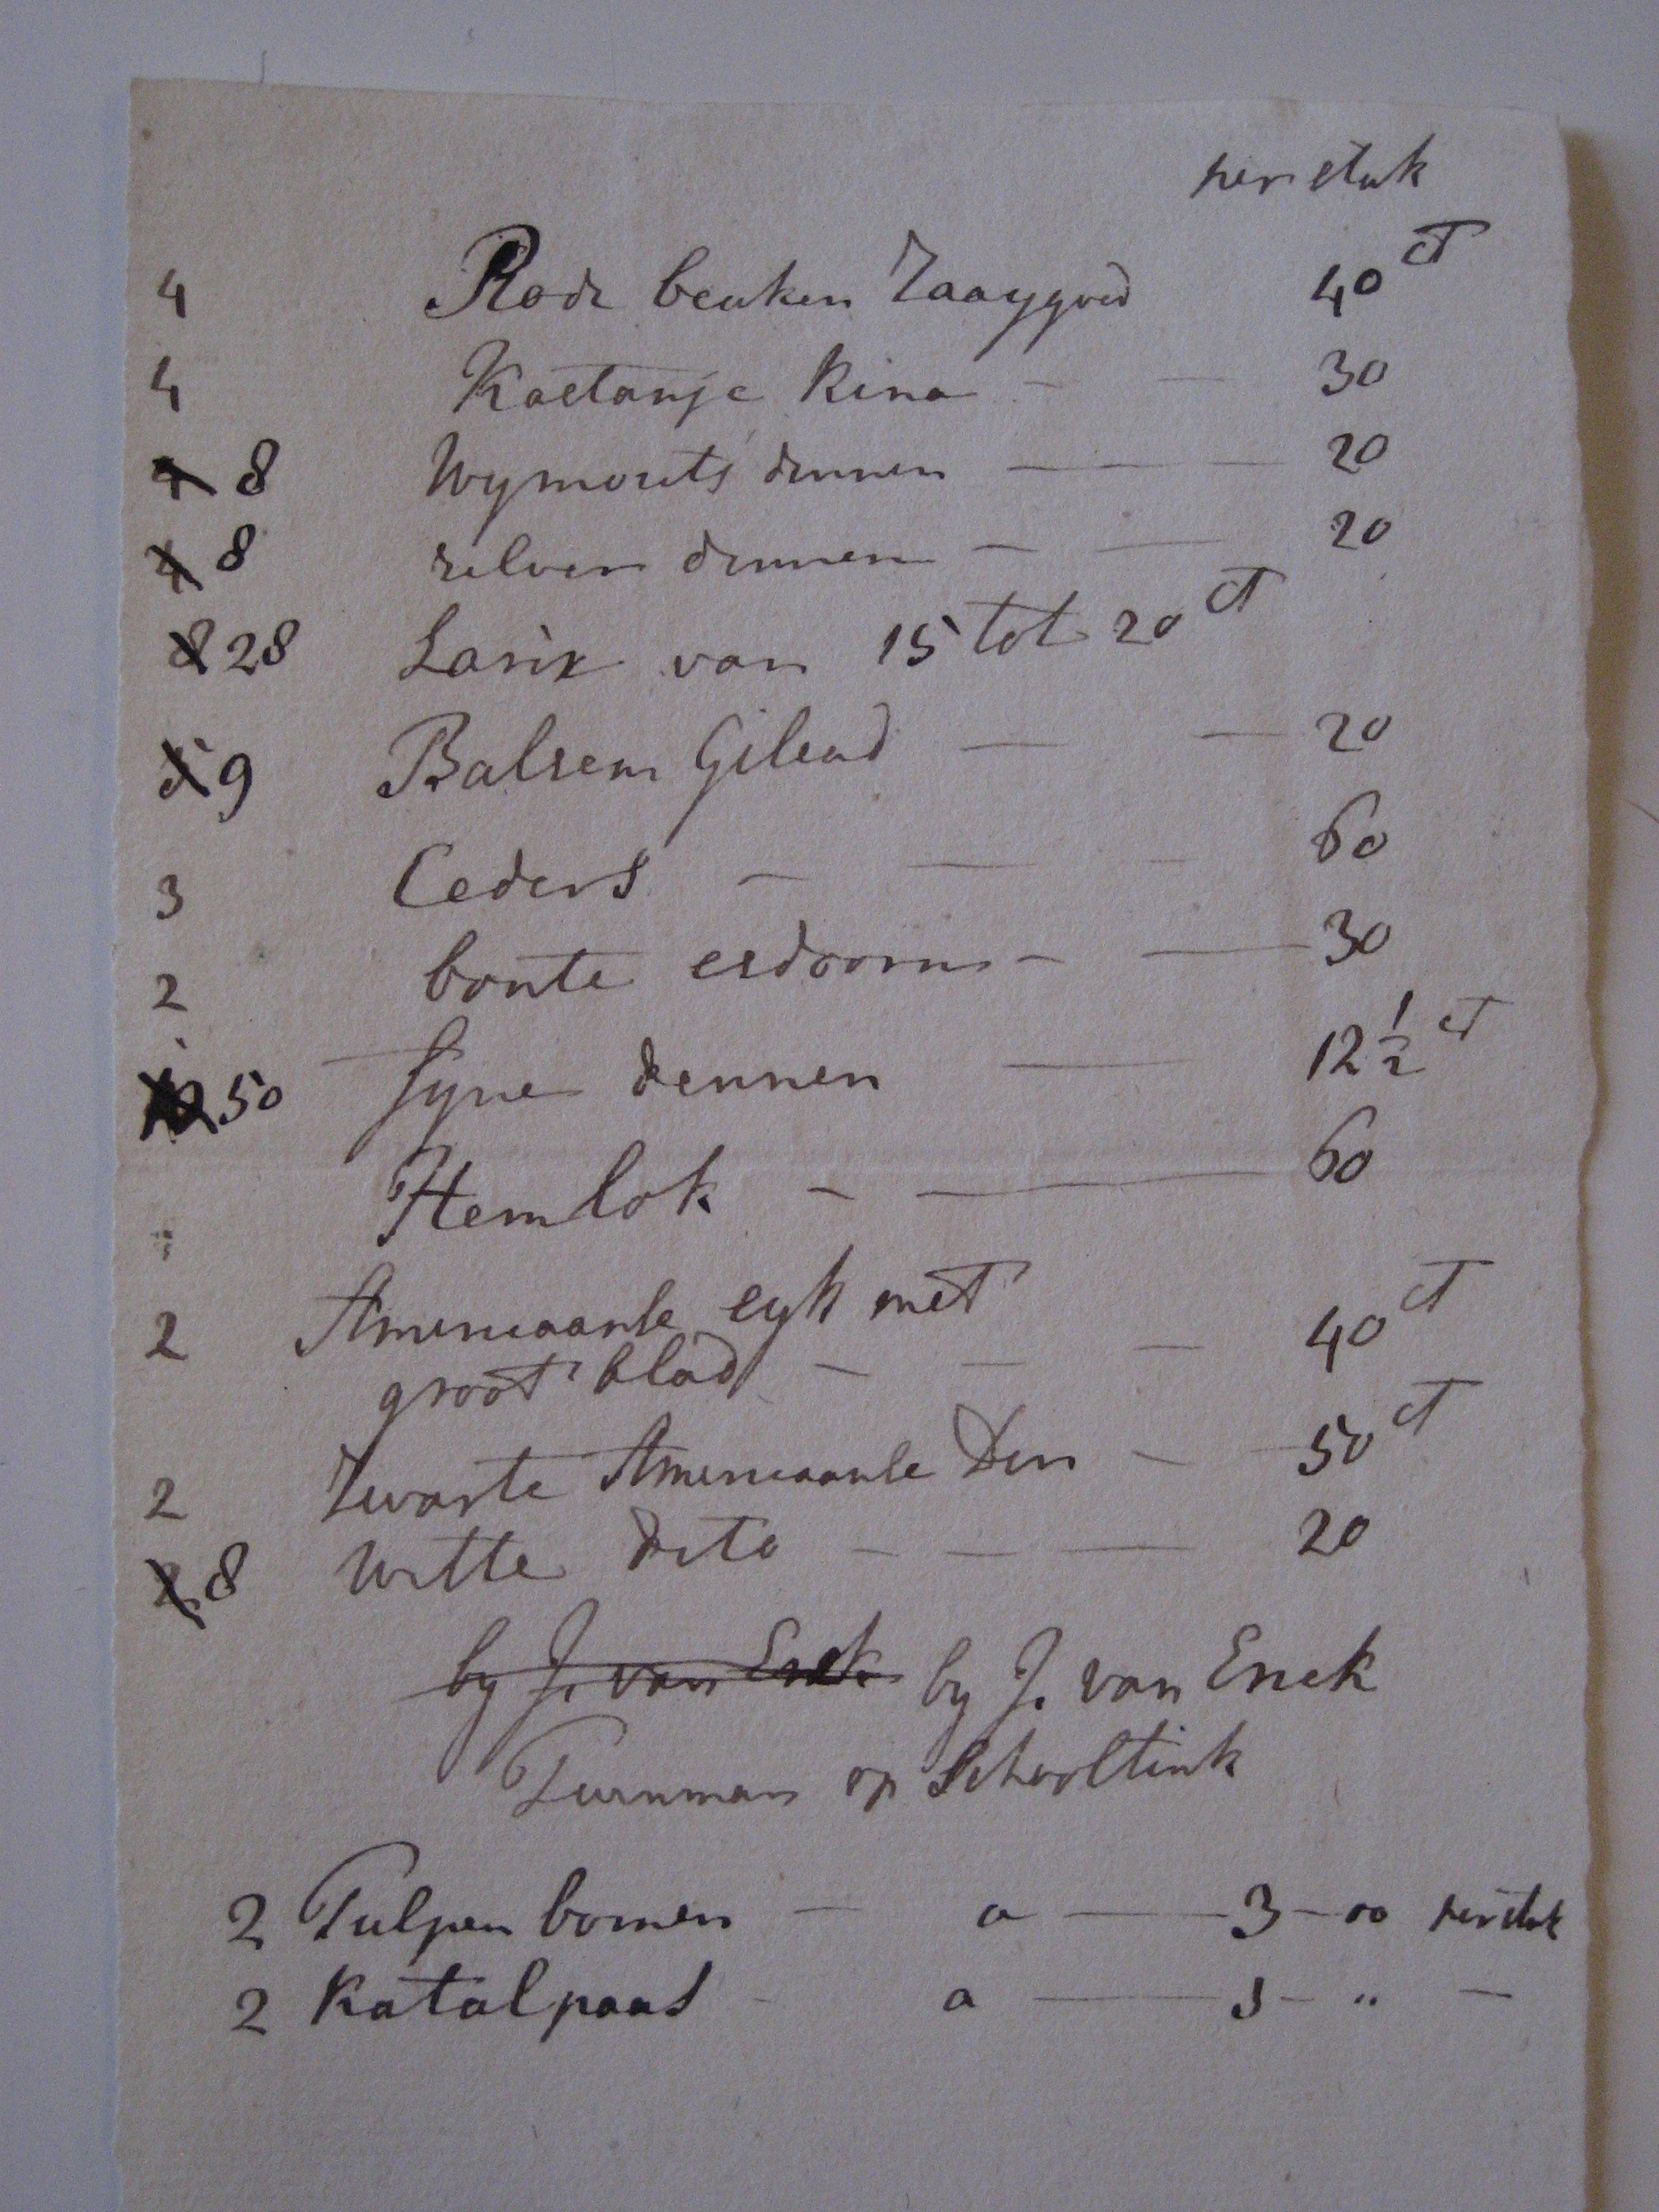 per stuk
4 Rode beuken Zaaygoed 40 ct
4 Kastanje Rina - - 30
4 8 Wymouts dennen - - - 20
4 8 zilver dennen - - 20
8 28 Larix van 15 tot 20 ct
5 9 Balsem Gilead - - 20
3 Ceders - - - 60
2 bonte esdoorn - - 30
50 fyne dennen - 12 1/2 ct
Hemlok - - 60
2 Americaanse eyk met
groot blad - - - 40 ct
2 Zwarte Americaanse Den - 50 ct
2 8 Witte dito - - - 20
by J. van Enck by J. van Enck
Tuinman op Schooltink
2 Tulpen bomen - a - 3 - 00 per stuk
2 Katalpaas - a - 3 - " -